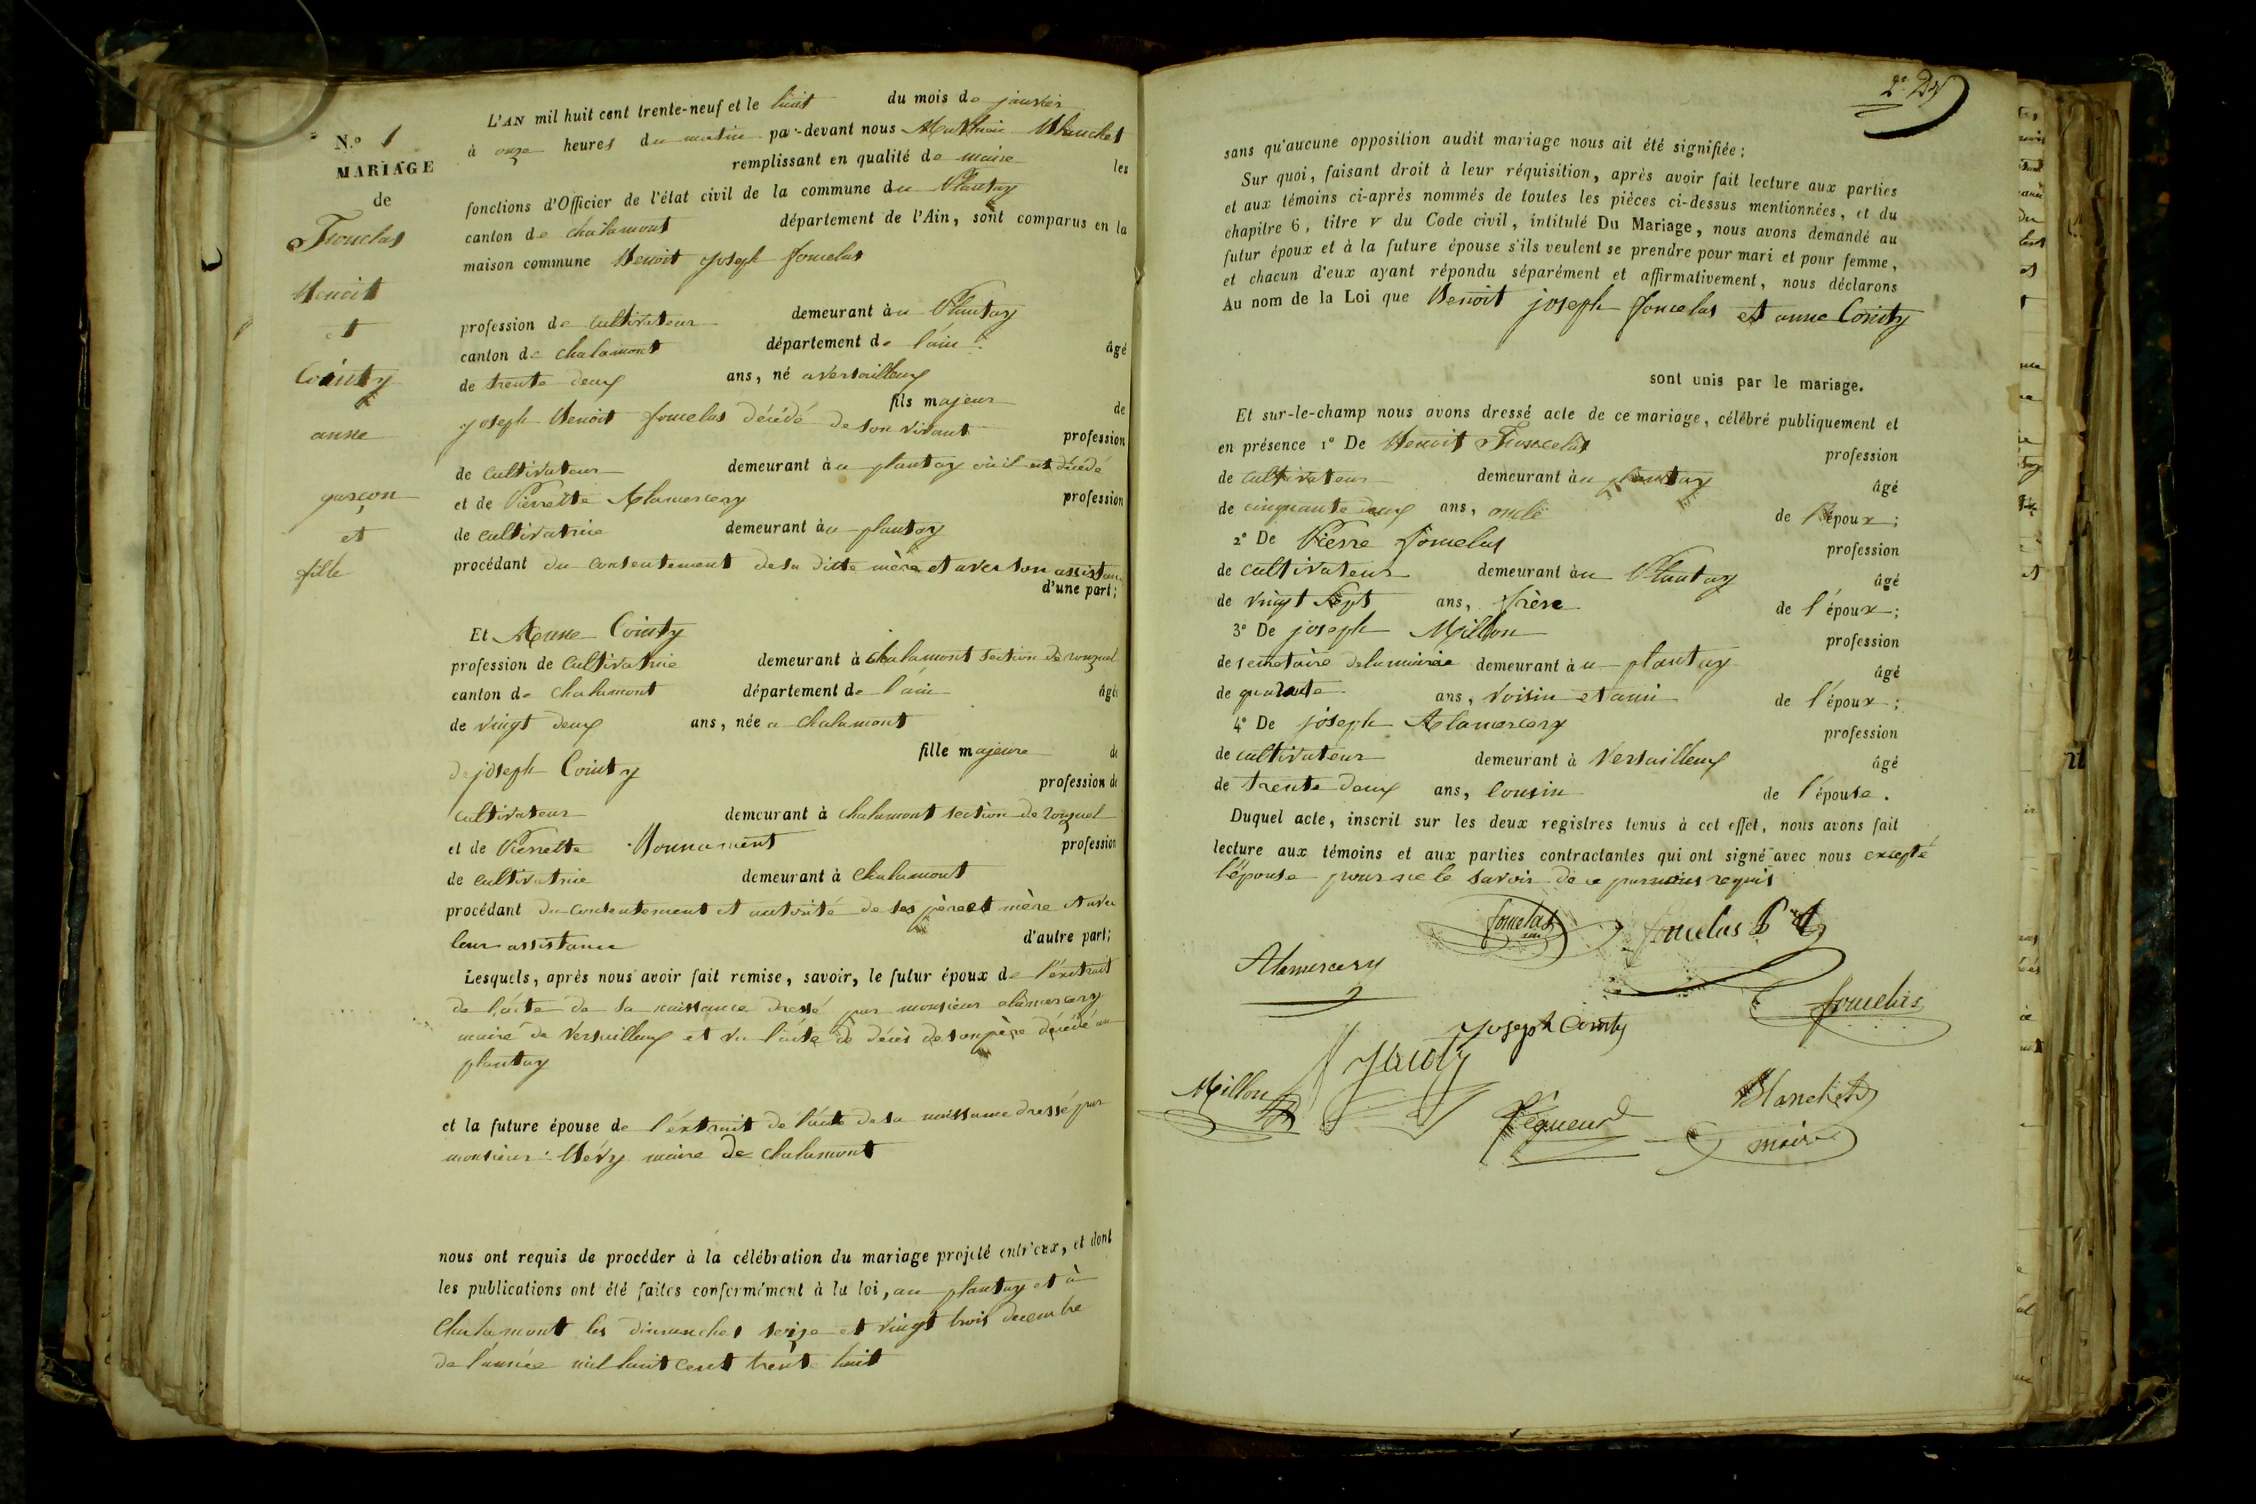 N.º 1
MARIAGE
de
Fouclas
Benoit
et
Cointy
anne
garçon
et
fille
L'AN mil huit cent trente-neuf et le huit du mois de janvier
à onze heures du matin par-devant nous Mathieu Blanchet
remplissant en qualité de maire les
fonctions d'Officier de l'état civil de la commune du Plantay
canton de chalamont département de l'Ain, sont comparus en la
maison commune Benoit joseph fouclas
profession de cultivateur demeurant au Plantay
canton de chalamont département de l'ain âgé
de trente deux ans, né a versailleux
fils majeur de
joseph Benoit fouclas décédé de son vivant profession
de cultivateur demeurant au plantay où il est décédé
et de Pierrette Alamercery profession
de cultivatrice demeurant au plantay
procédant du consentement de sa ditte mère et avec son assistance
d'une part;
Et Anne Cointy
profession de cultivatrice demeurant à chalamont section de ronzuel
canton de chalamont département de l'ain âgée
de vingt deux ans, née a chalamont
fille majeure de
de joseph Cointy profession de
cultivateur demeurant à chalamont section de ronzuel
et de Pierrette Bonnament profession
de cultivatrice demeurant à chalamont
procédant du consentement et autorité de ses père et mère et avec
leur assistance d'autre part;
Lesquels, après nous avoir fait remise, savoir, le futur époux de l'éxtrait
de l'acte de sa naissance dressé par monsieur alamercery
maire de versailleux et vu l'acte de décès de son père décédé au
plantay
et la future épouse de l'éxtrait de l'acte de sa naissance dressé par
monsieur Bévy maire de chalamont
nous ont requis de procéder à la célébration du mariage projeté entr'eux, et dont
les publications ont été faites conformément à la loi, au plantay et à
Chalamont les dimanches seize et vingt trois decembre
de l'année mil huit cent trente huit
sans qu'aucune opposition audit mariage nous ait été signifiée;
Sur quoi, faisant droit à leur réquisition, après avoir fait lecture aux parties
et aux témoins ci-après nommés de toutes les pièces ci-dessus mentionnées, et du
chapitre 6, titre v du Code civil, intitulé Du Mariage, nous avons demandé au
futur époux et à la future épouse s'ils veulent se prendre pour mari et pour femme,
et chacun d'eux ayant répondu séparément et affirmativement, nous déclarons
Au nom de la Loi que Benoit joseph fouclas et anne Cointy
sont unis par le mariage.
Et sur-le-champ nous avons dressé acte de ce mariage, célébré publiquement et
en présence 1º De Benoit Fouclas profession
de cultivateur demeurant au plantay âgé
de cinquante deux ans, oncle de l'époux;
2º De Pierre fouclas profession
de cultivateur demeurant au Plantay âgé
de vingt sept ans, frère de l'époux;
3º De joseph Millon profession
de secretaire de la mairie demeurant au plantay âgé
de quarante ans, voisin et ami de l'époux;
4º De joseph Alamercery profession
de cultivateur demeurant à Versailleux âgé
de trente deux ans, cousin de l'épouse.
Duquel acte, inscrit sur les deux registres tenus à cet effet, nous avons fait
lecture aux témoins et aux parties contractantes qui ont signé avec nous excepté
l'épouse pour ne le savoir de ce par nous requis
fouclas fouclas Bt
Alamercery
fouclas
Joseph Cointy
Jacoty
Millon
Blanchet
maire